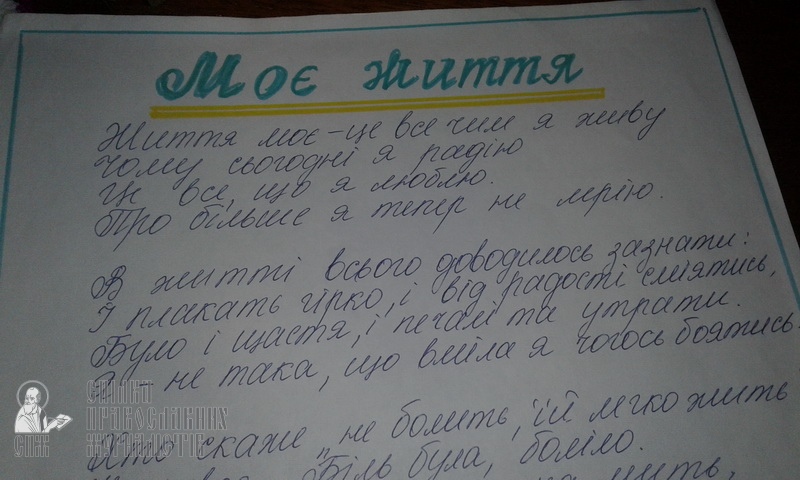 Моє життя
Життя моє – це все чим я живу
Чому сьогодні я радію
Це все, що я люблю.
Про більше я тепер не мрію.
В житті всього доводилось зазнати:
І плакать гірко, і від радості сміятись,
Було і щастя, і печалі та утрати.
Я – не така, що вміла я чогось боятись.
Хто скаже „не болить, їй легко жить
Біль була, боліло.
СПІЛКА
ПРАВОСЛАВНИХ
ЖУРНАЛІСТІВ